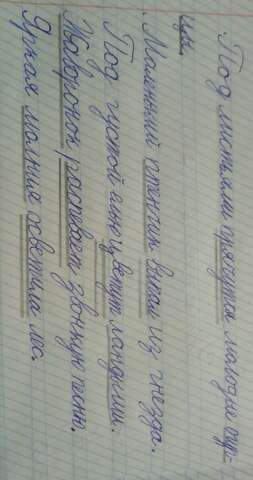 Под листьями прячутся молодые огур=
цы.
Маленький птенчик выпал из гнезда.
Под густой ели цветут ландыши.
Жаворонок распевает звонкую песню.
Яркая молния осветила лес.